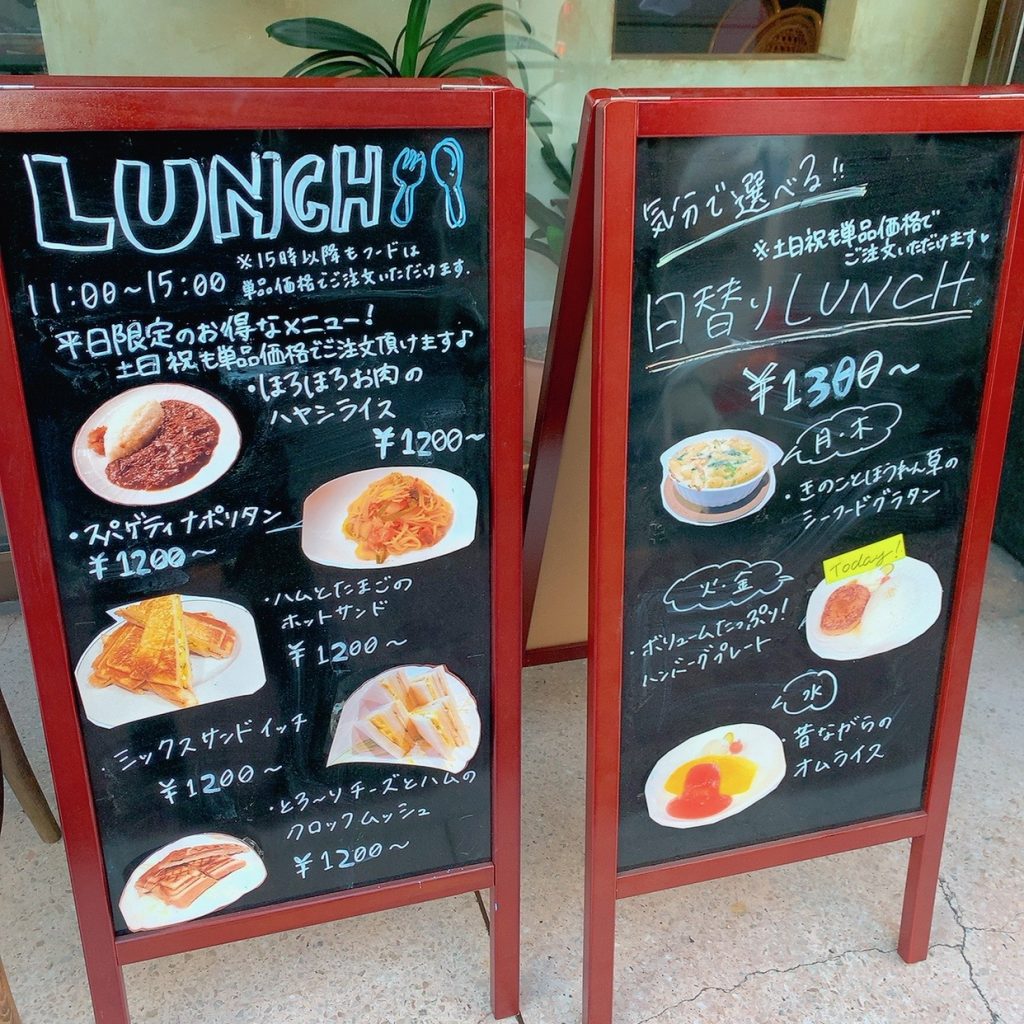 LUNCH
11:00~15:00
※15時以降もフードは
単品価格でご注文いただけます.
平日限定のお得なメニュー!
土日祝も単品価格でご注文頂けます♪
・ほろほろお肉の
ハヤシライス
¥1200~
・スパゲティナポリタン
¥1200~
・ハムとたまごの
ホットサンド
¥1200~
・ミックスサンドイッチ
¥1200~
・とろ~りチーズとハムの
クロックムッシュ
¥1200~
気分で選べる!!
※土日祝も単品価格で
ご注文いただけます♥
日替りLUNCH
¥1300~
月・木
・きのことほうれん草の
シーフードグラタン
Today!
火・金
・ボリュームたっぷり!
ハンバーグプレート
水
・昔ながらの
オムライス